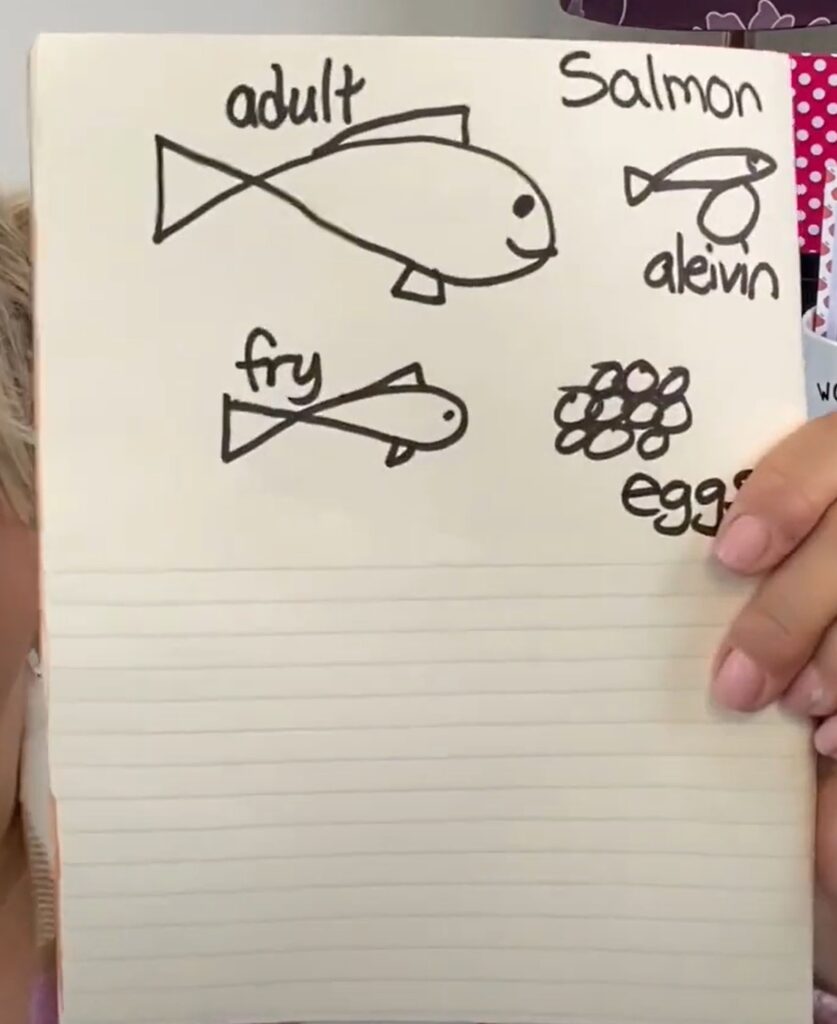 adult
Salmon
aleivin
fry
eggs